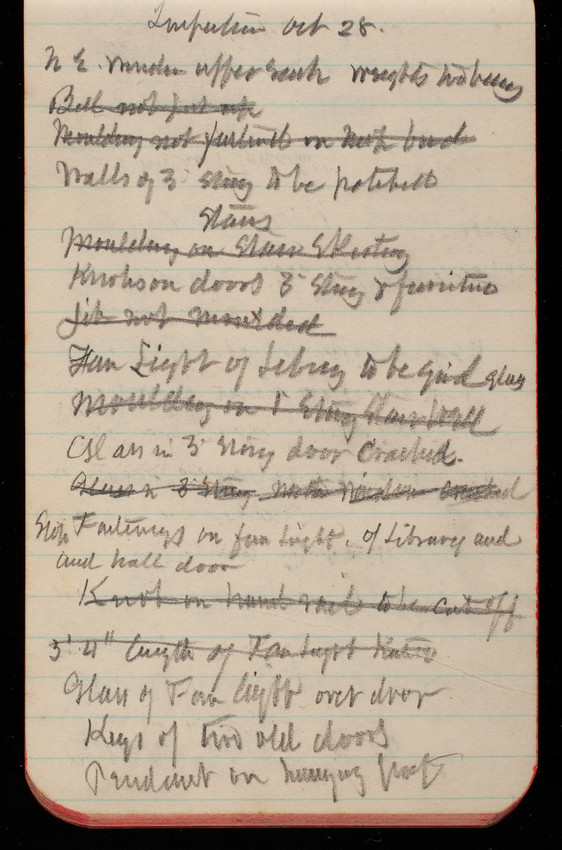 Inspection Oct 28.
N E. window upper sash weights
Bell not put up
Moulding not on
Walls of 3 story to be patched
Stairs
Moulding on Stairs
Knobs on doors 3 Story & furniture
not moulded
Fan Light of Library to be Grnd glass
Moulding on 1 Story Stair Wall
Glass in 3 Story door Cracked.
Glass in 3 Story North Window Cracked
Stop Fastenings on fan light. of Library and
and hall door
Knob on hand rail to be cut off
3' 4" length of Fan light
Glass of Fan light over door
Keys of two old doors
Pendant on newel post